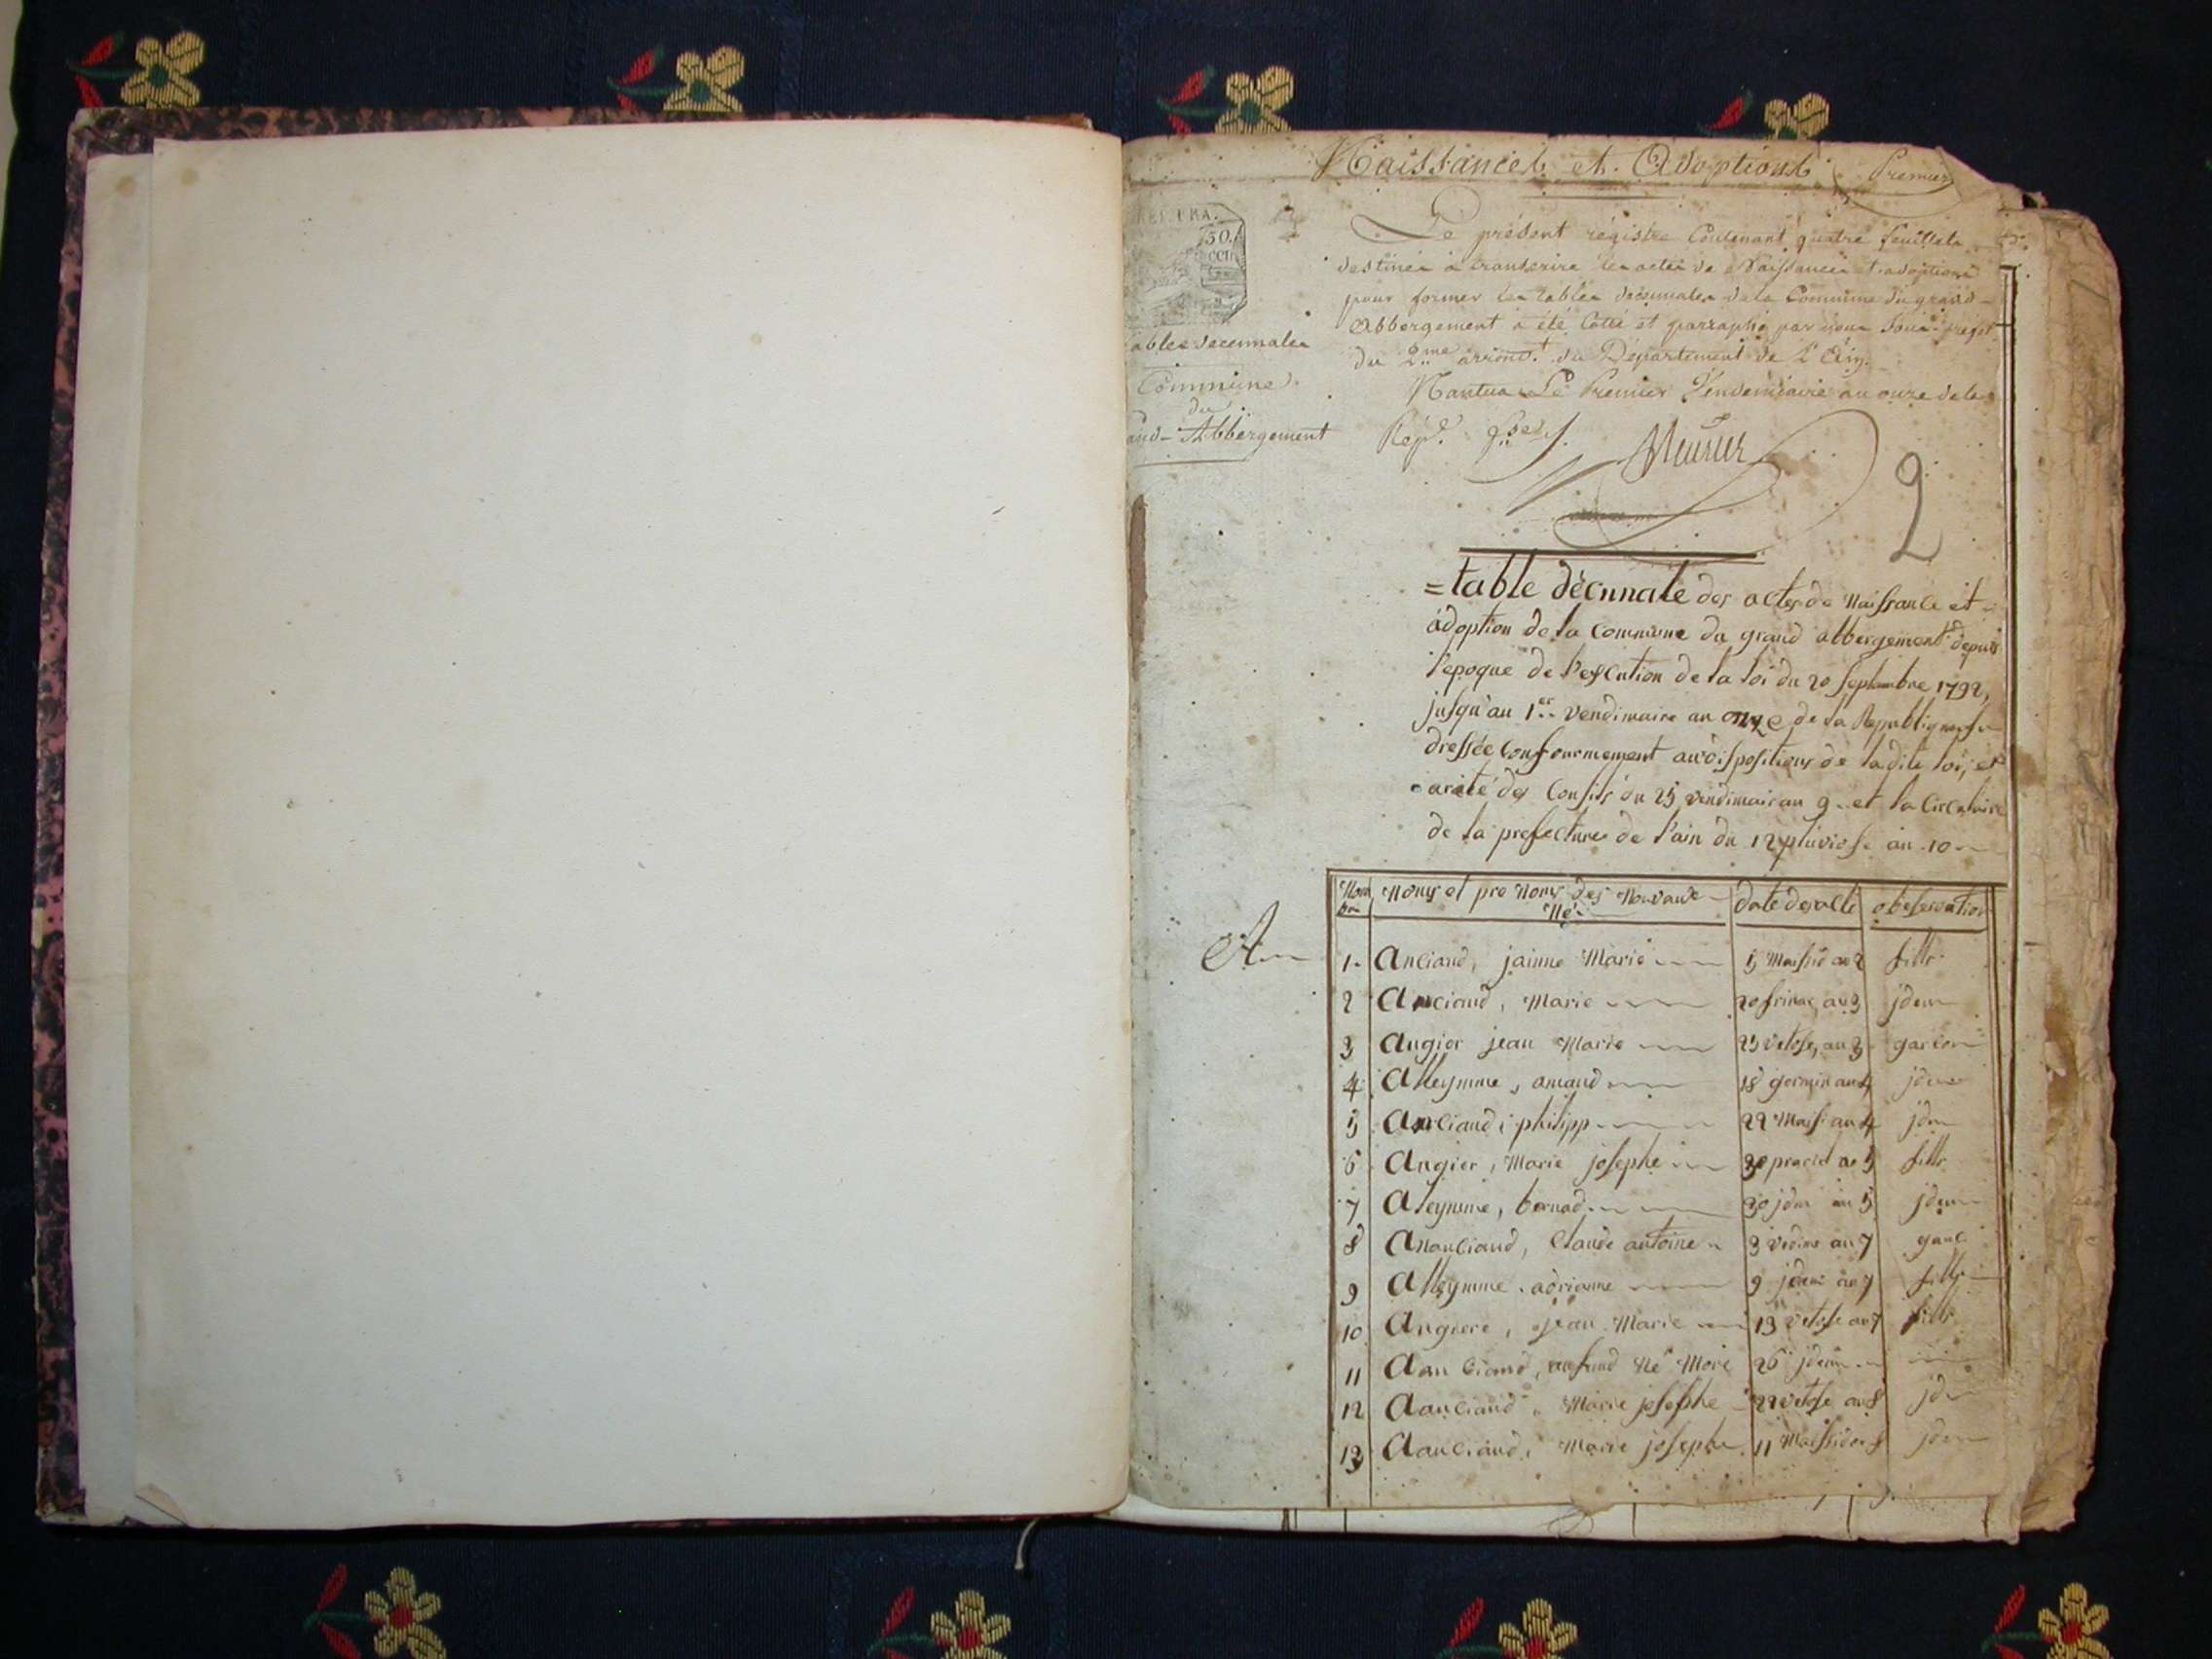 Naissances et Adoptions Premier
REP. FRA.
50.
cen
ables decennales
Commune
du
and-Abbergement
Le présent régistre Contenant quatre feuillets
destinés à transcrire les actes de Naissances et adoptions
pour former les tables décennales de la Commune du grand-
Abbergement a été Cotté et paraphé par nous Sous-prefet
du 2.me arrond.t du Département de L'Ain.
Nantua Le Premier Vendemiaire an onze de la
Rép.e
2
=table décennale des actes de Naissance et
adoption de la Commune du grand abbergement depuis
l'epoque de l'exécution de la loi du 20 septembre 1792,
jusqu'au 1er vendimaire an onze de la Republique
dressée Confourmement au dispositions de ladite loi, et
arété des Consils du 25 vendimair an 9 et la Circulaire
de la prefecture de l'ain du 12 pluviose an 10
Noms et pre Noms des Nouvaux Né date des acte obsesvation
A
1 Anciand, jainne Marie 5 Messid an 2 fille
2 Anciand, Marie 20 frimai an 3 jdem
3 Augier jean Marie 25 vetose, an 3 garcon
4 Alleymme, amand 18 germin an 4 jdem
5 Anciand philipp 22 Mess an 4 jdm
6 Augier, Marie josephe 30 prarial an 5 fille
7 Aleymme, bernad 30 jdm an 5 jdem
8 Anauciand, Claude antoine 3 vedime an 7 garc
9 Alleymme adrianne 9 jdem an 7 fille
10 Augiere, jean Marie 19 vetose an 7 fille
11 Aanciand, anfand Né More 26 jdem
12 Aauciand, Marie josephe 22 vetose an 8 jdm
13 Aauciand, Marie josephe 11 Messidor 8 jdem